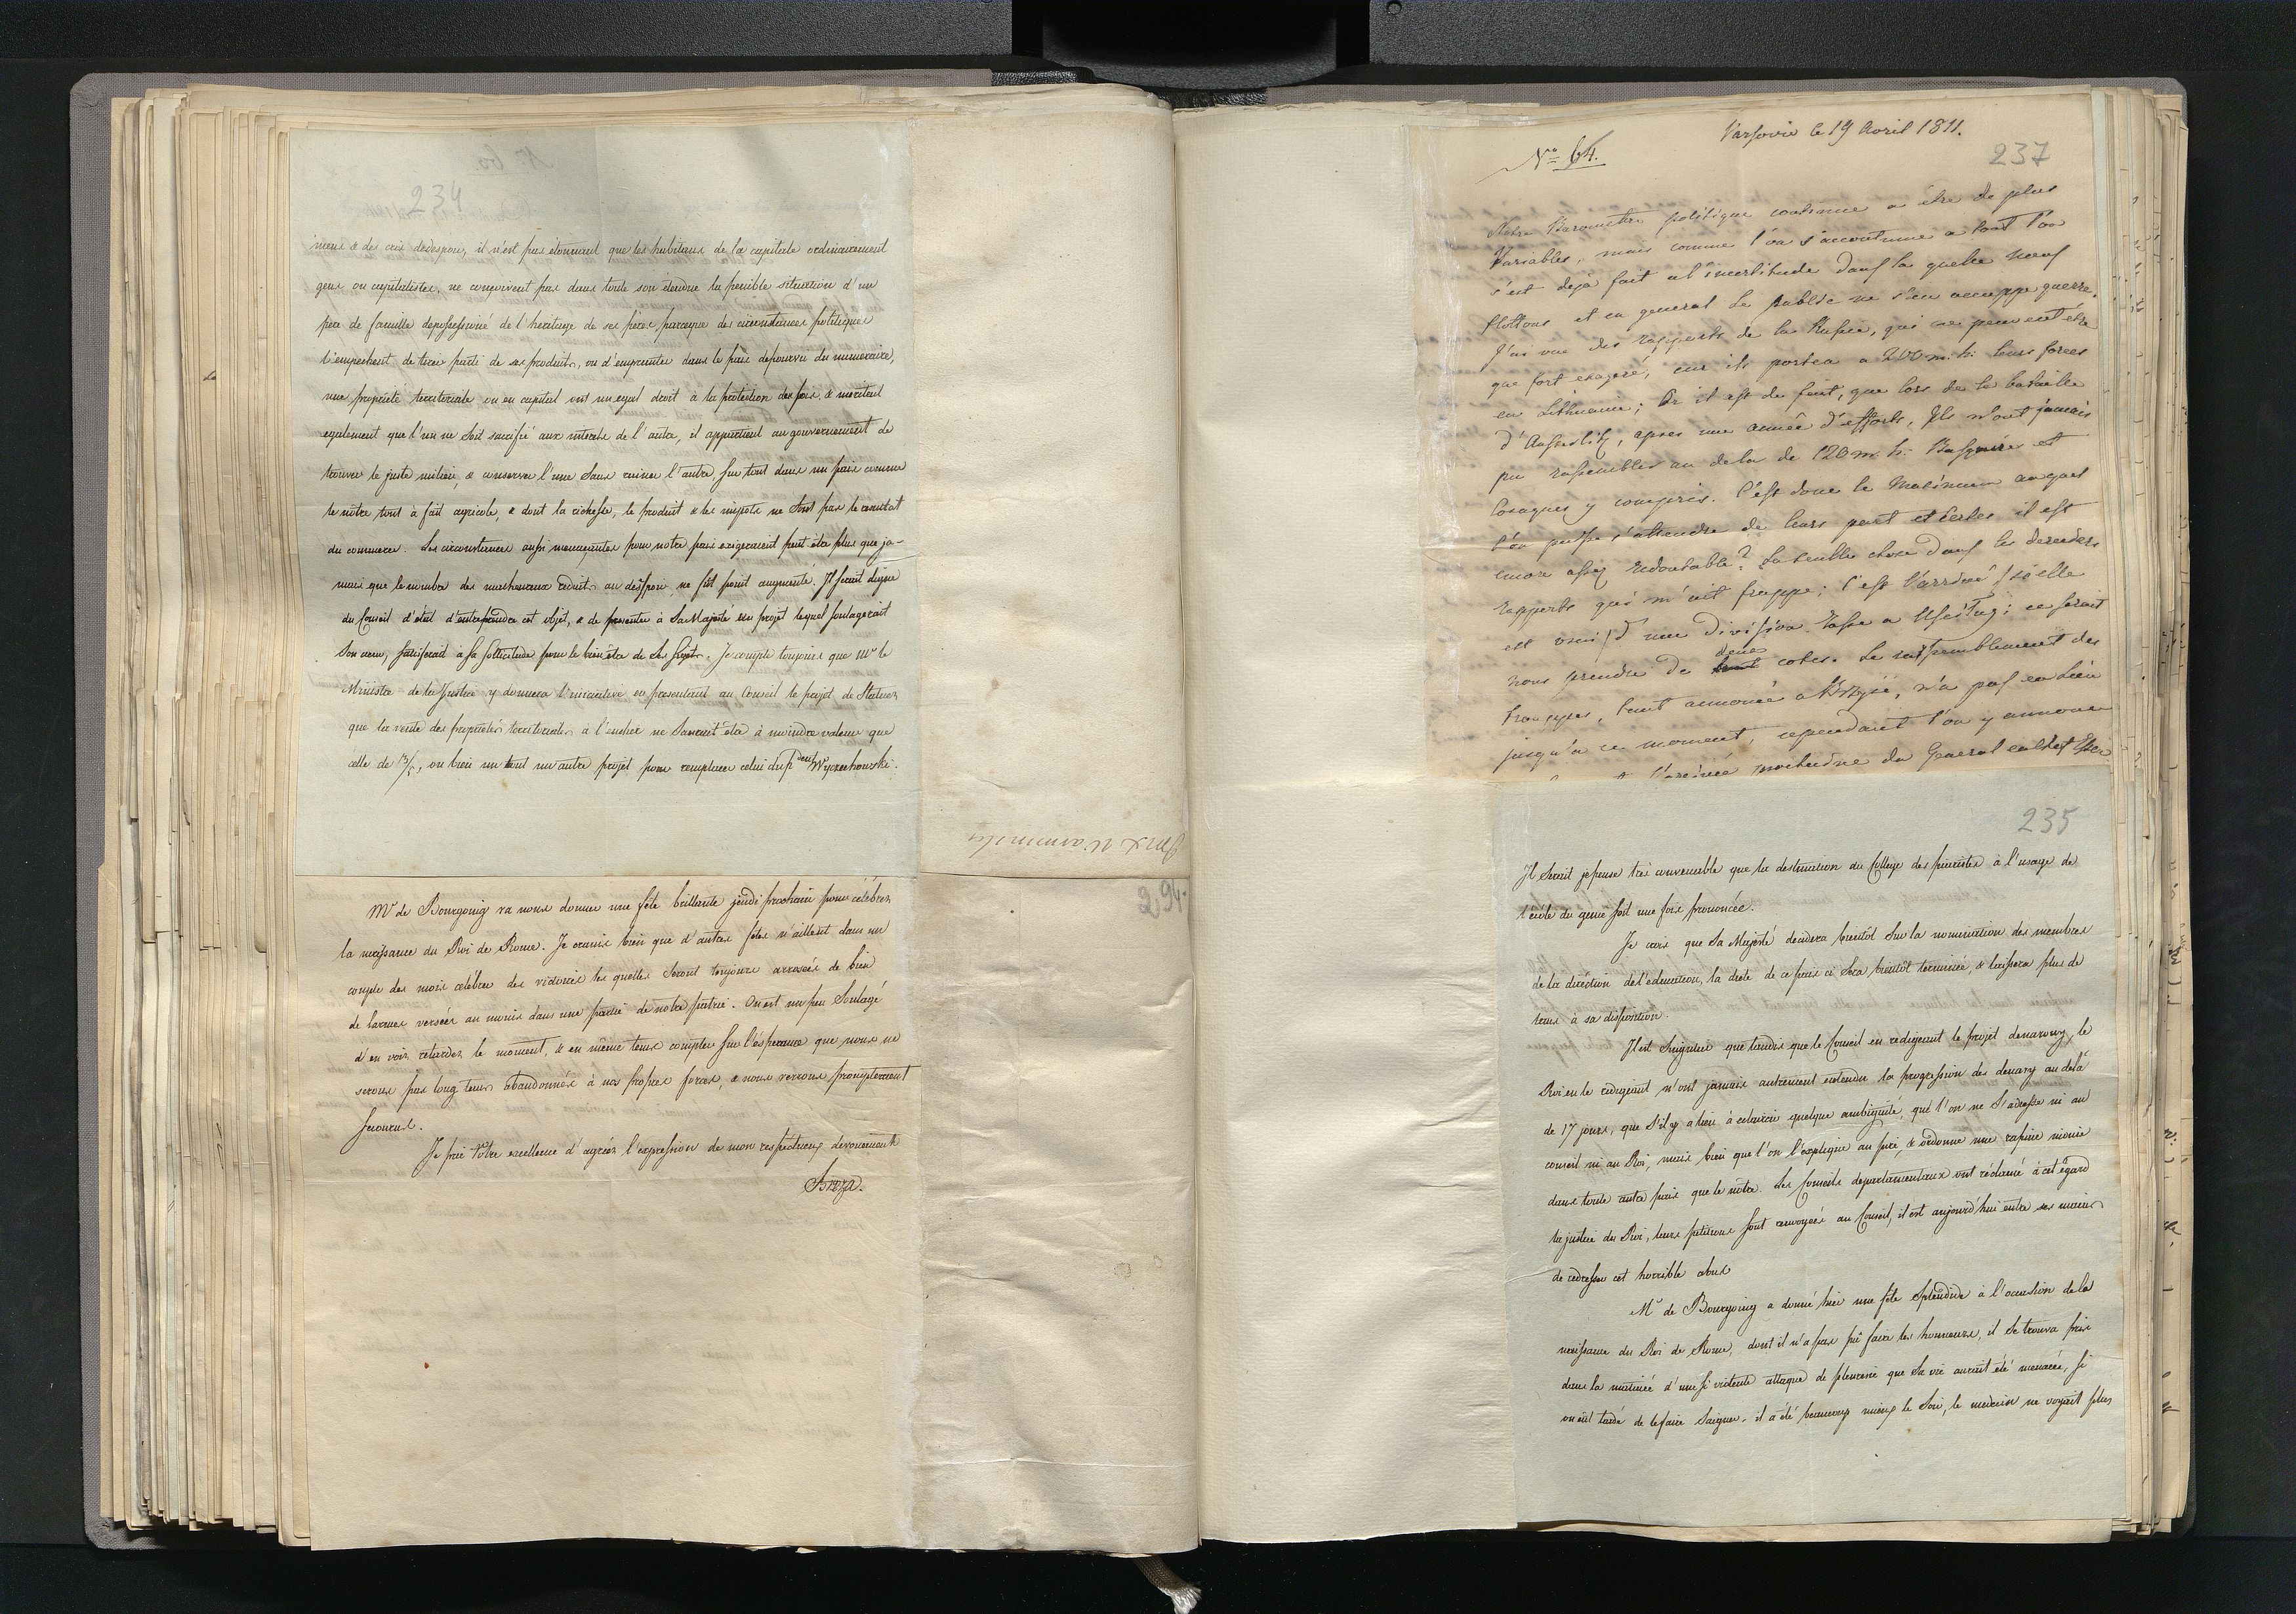 234
mens & des cris de desespoir, il n'est pas étonnant que les habitans de la capitale ordinairement
gens ou capitalistes, ne conçoivent pas dans toute son étendue la penible situation d'un
père de famille depossessioné de l'heritage de ses pères parceque des circonstances politiques
l'empechent de tirer parti de ses produits, ou d'emprunter dans le païs depourvu du numeraire,
une proprieté territoriale ou en capital ont un egal droit à la protection des lois, & meritent
egalement que l'un ne soit sacrifié aux interets de l'autre, il appartient au gouvernement de
trouver le juste milieu, & conserver l'une sans ruiner l'autre, sur tout dans un païs comme
le nôtre tout à fait agricole, & dont la richesse, le produit & les impots ne sont pas le resultat
du commerce. Les circonstances aussi menaçantes pour notre païs exigeraient peut être plus que ja-
mais que le nombre des malheureux reduits au désespoir ne fût point augmenté. Il serait digne
du Conseil d'état d'entreprendre cet objet, & de presenter à Sa Majesté un projet lequel soulagerait
Son cœur, satisferait à sa sollicitude pour le bien être de Ses sujets. Je compte toujours que Mr le
Ministre de la Justice y donnera l'iniciative en presentant au Conseil le projet de Statuer
que la vente des proprietés territoriales à l'encher ne Saurait être à moindre valeur que
celle de , ou bien un tout autre projet pour remplacer celui du pdent Wyczechowski.
Mr de Bourgoing va nous donner une fête brillante jeudi prochain pour célébrer
la naissance du Roi de Rome. Je crains bien que d'autres fêtes n'aillent dans un
couple des mois célébrer des victoires les quelles seront toujours arrosées de bien
de larmes versées au moins dans une partie de notre patrie. On est un peu Soulagé
d'en voir retarder le moment, & en même tems compter sur l'ésperance que nous ne
serons pas long tems abandonnés à nos propres forces, & nous verrons promptement
secourus.
Je prie Votre excellence d'agréer l'expression de mon respectueux devouement
294.
Varsovie le 19 Avril 1811.
No 64.
237
Notre Barometre politique continue a être de plus
Variables, mais comme l'on s'accoutume a tout l'on
s'est déjà fait a l'incertitude dans la quelle nous
flottons et en general le public ne s'en occuppe guerre.
J'ai vue des rapports de la Russie, qui ne peuvent être
que fort exageré, car ils portent a 200 m. h: leurs forces
en Lithuanie; Or il est de fait, que lors de la bataille
d'Austerlitz, apres une année d'efforts, Ils n'ont jamais
pu rassembler au dela de 120 m. h:
Cosaques y compris. C'est donc le Maximum auquel
l'on puisse s'attendre de leurs part et certes il est
encore assez redoutable? La seulle chose dans les derniers
rapports qui m'ait frappe; c'est l'arrivée /si elle
est vrai/ d'une Division Russe a ; ce serait
nous prendre de deux cotés. Le rassemblement des
trouppes, tant annoncée a , n'a pas eu lieu
jusqu'a ce moment, cependant l'on y annonce
l'arrivée prochaine du General en chef
235
Il Serait je pense très convenable que la destination du College des piaristes à l'usage de
l'école du genie soit une fois prononcée.
Je crois que Sa Majesté decidera bientôt Sur la nomination des membres
de la diréction de l'education, la diete de ce païs ci sera bientôt terminée, & laissera plus de
tems à sa disposition.
Il est Singulier que tandis que le Conseil en redigeant le projet , le
Roi en le corrigeant n'ont jamais autrement entendu la progression des au delà
de 17 jours, que s'il y a lieu à eclaircir quelque ambiguité, que l'on ne S'adresse ni au
conseil ni au Roi, mais bien que l'on l'explique au , & ordonne une rapine inouie
dans toute autre païs que le nôtre. Les Conseils departamentaux ont réclamé à cet égard
la justice du Roi, leurs petitions sont renvoyées au Conseil, il est aujourd'hui entre ses mains
de redresser cet horrible abus
Mr de Bourgoing a donné hier une fête Splendide à l'occasion de la
naissance du Roi de Rome, dont il n'a pas pû faire les honneurs, il Se trouva pris
dans la matinée d'une si violente attaque de pleuresie que Sa vie aurait été menacée, si
on eût tardé de le faire Saigner. il a été beaucoup mieux le Soir, le medecin ne voyait plus